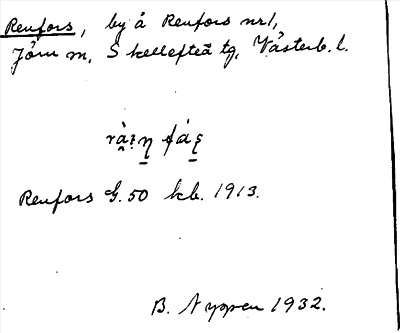 Renfors, by å Renfors nr1,
Jörn m, Skellefteå tg, Västerb. l.
Renfors G.50 kb. 1913.
B. Nyman 1932.